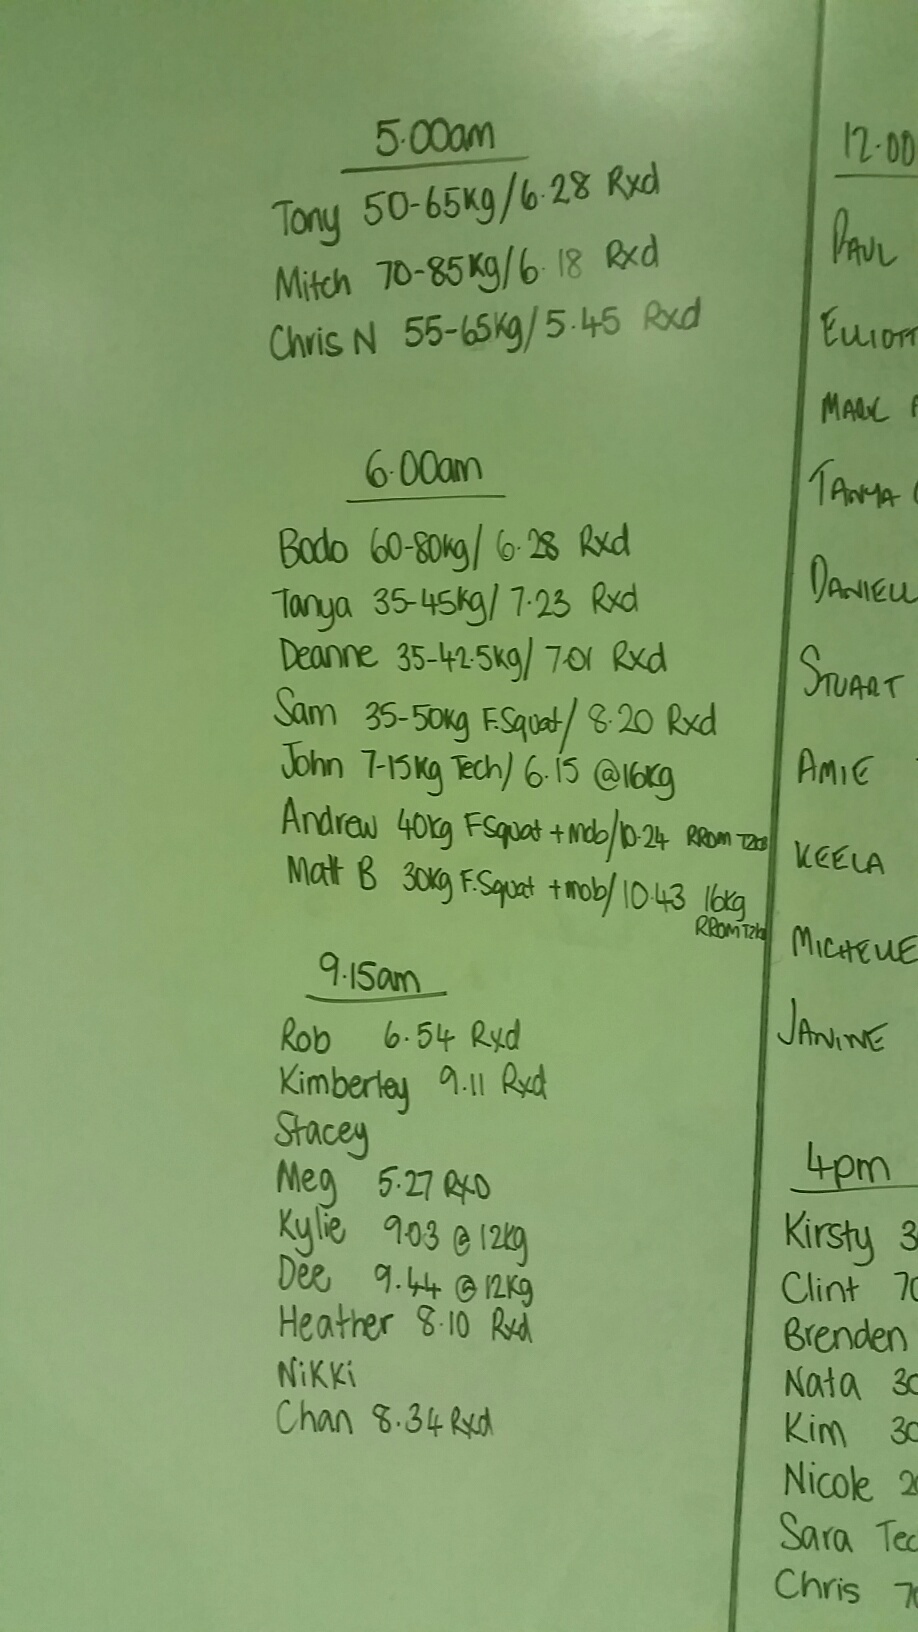 5.00am
Tony 50-65kg/6.28 Rxd
Mitch 70-85kg/6.18 Rxd
Chris N 55-65kg/5.45 Rxd
6.00am
Bodo 60-80kg/ 6.28 Rxd
Tanya 35-45kg/ 7.23 Rxd
Deanne 35-42.5kg/ 7.01 Rxd
Sam 35-50kg F.Squat/ 8.20 Rxd
John 7-15kg Tech/ 6.15 @16kg
Andrew 40kg F.Squat +mob/10.24 RROM
Matt B 30kg F.Squat +mob/10.43 16kg
RROM
9.15am
Rob 6.54 Rxd
Kimberley 9.11 Rxd
Stacey
Meg 5.27 RXD
Kylie 9.03 @ 12kg
Dee 9.44 @ 12kg
Heather 8.10 Rxd
Nikki
Chan 8.34 Rxd
12.00
PAUL
ELLIOTT
MARK
TANYA
DANIELL
STUART
AMIE
KEELA
MICHELLE
JANINE
4pm
Kirsty 3
Clint 70
Brenden
Nata 30
Kim 30
Nicole 2
Sara Tec
Chris 70